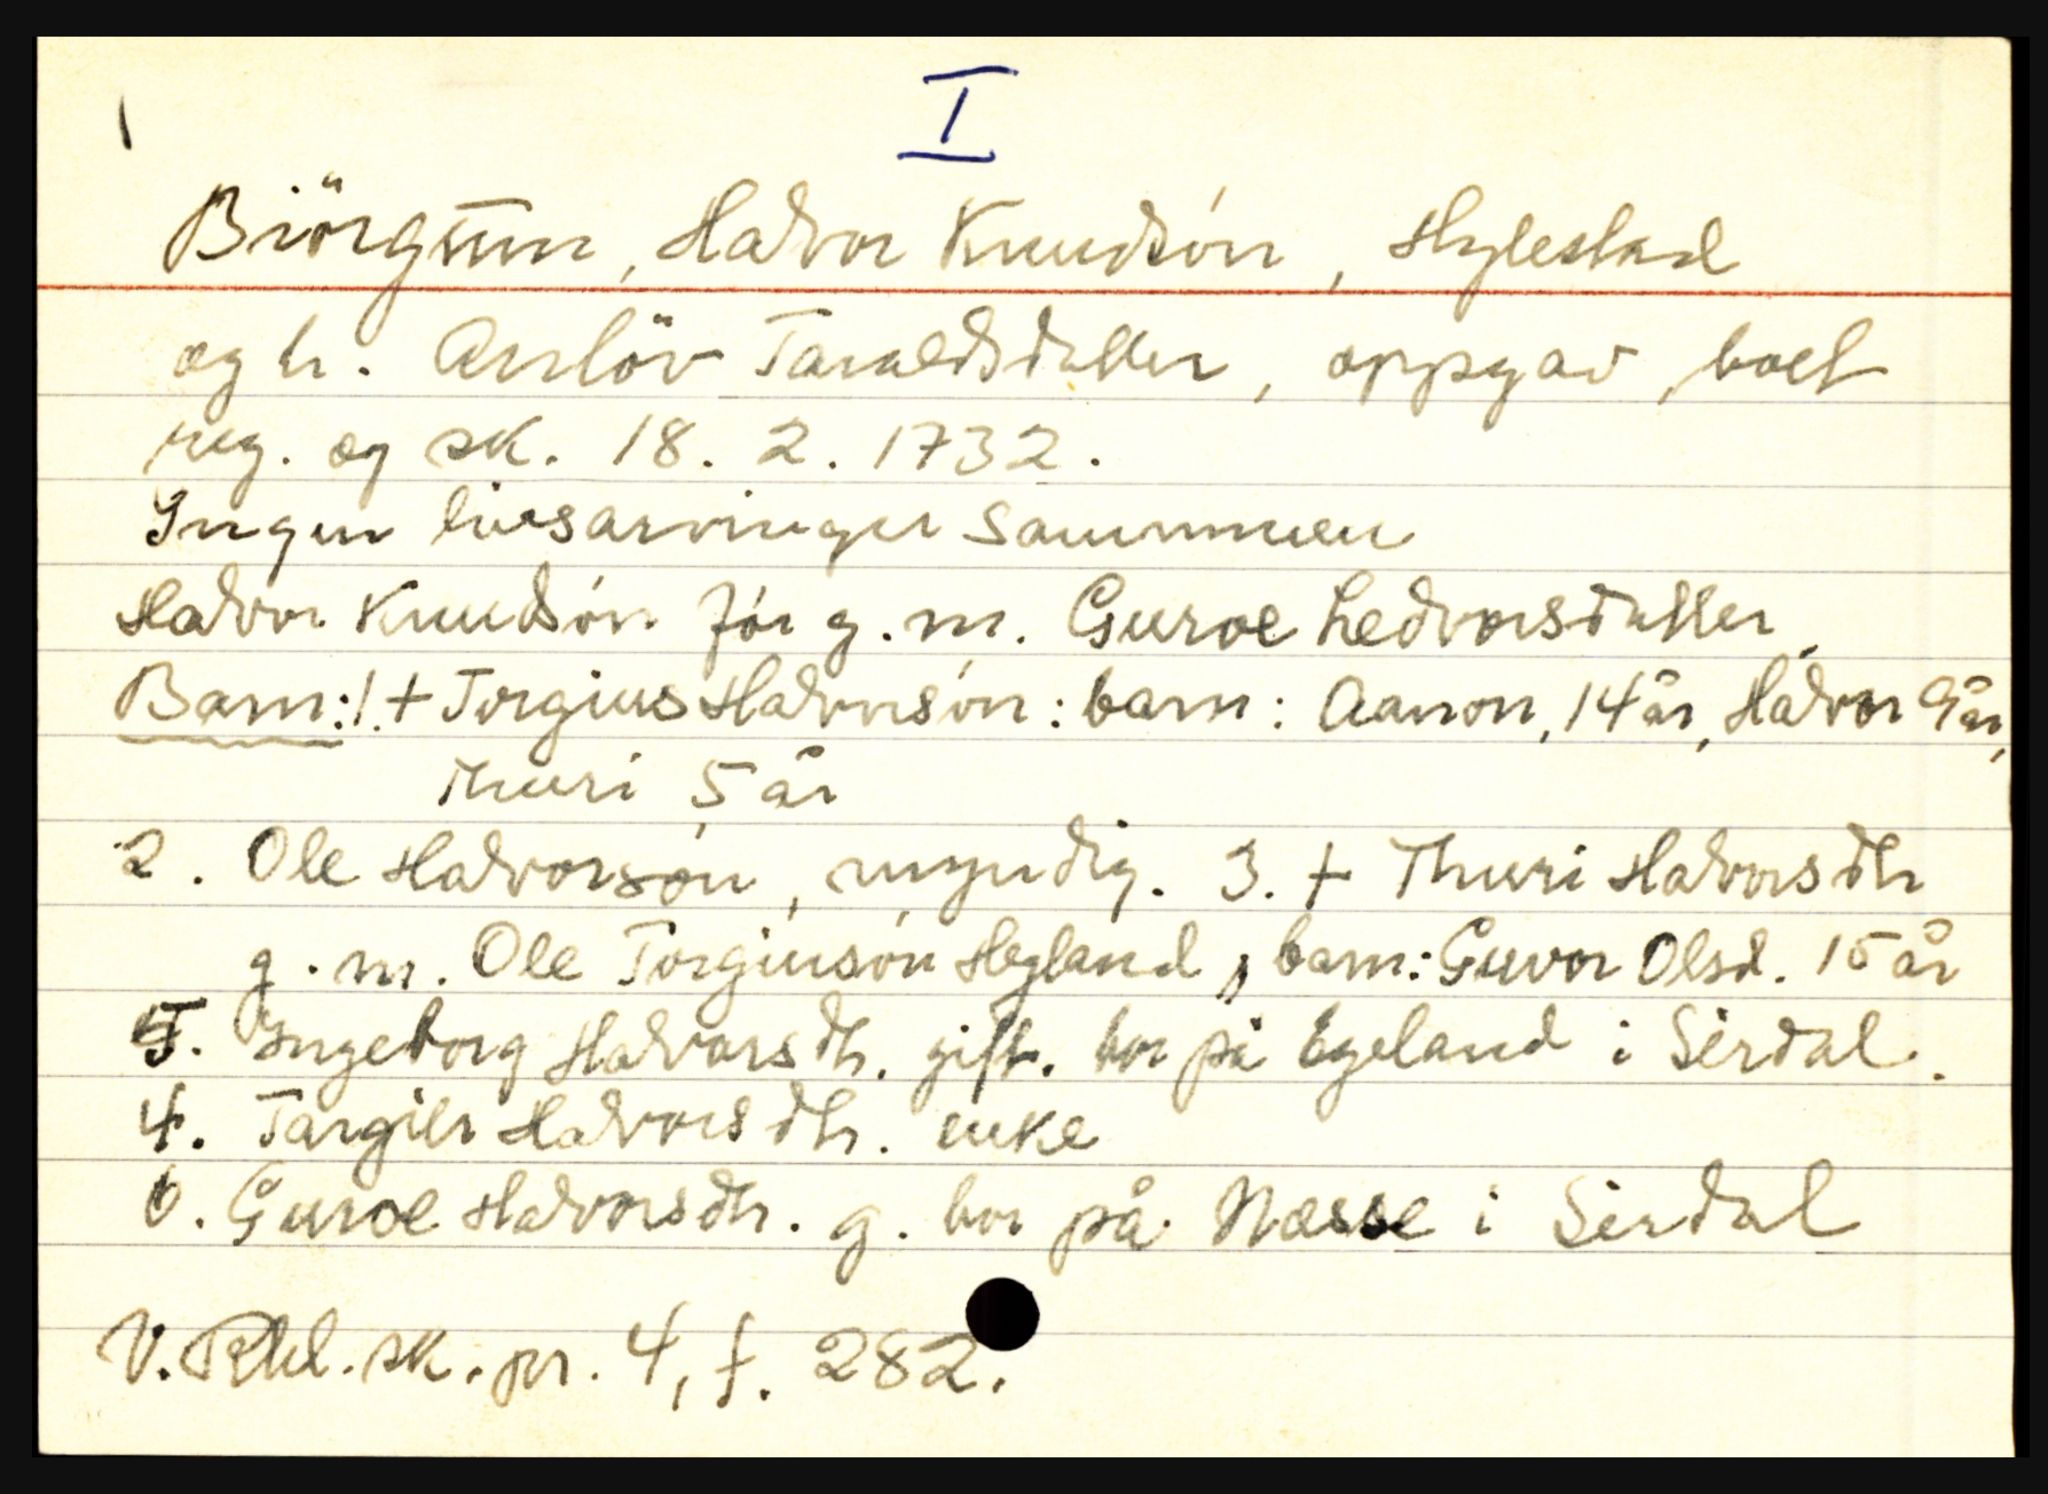 I
Biörgum, Halvor Knudsón, Hylestad
og h. Asslöv Taraldsdatter, oppgav boet
reg. og sk. 18. 2. 1732.
Ingen livsarvinger sammmen
Halvor Knudsón før g. m. Guroe Ledvorsdatter
Barn: 1. + Torgius Halvorsón: barn: Aanon, 14 år, Halvor 9 år,
Thuri 5 år
2. Ole Halvorson, myndig. 3. + Thuri Halvorsdtr
g. m. Ole Torgiusón Hegland, barn: Guvor Olsd. 15 år
5. Ingeborg Halvorsdtr. gift. bor på Egeland i Sirdal.
4. Targier Halvorsdtr. enke
6. Guroe Halvorsdtr. g. bor på Næsse i Sirdal
V. Rbl. sk. pr. 4, f. 282.